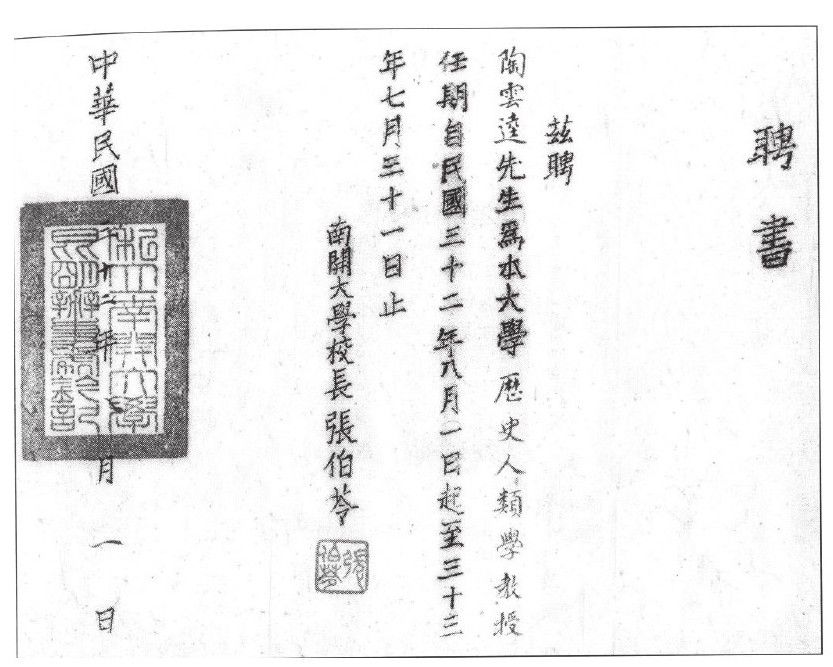 聘書
茲聘
陶雲逵先生爲本大學歷史人類學教授
任期自民國三十二年八月一日起至三十三
年七月三十一日止
南開大學校長張伯苓
張伯苓
中華民國三十二年月一日
私立南開大學